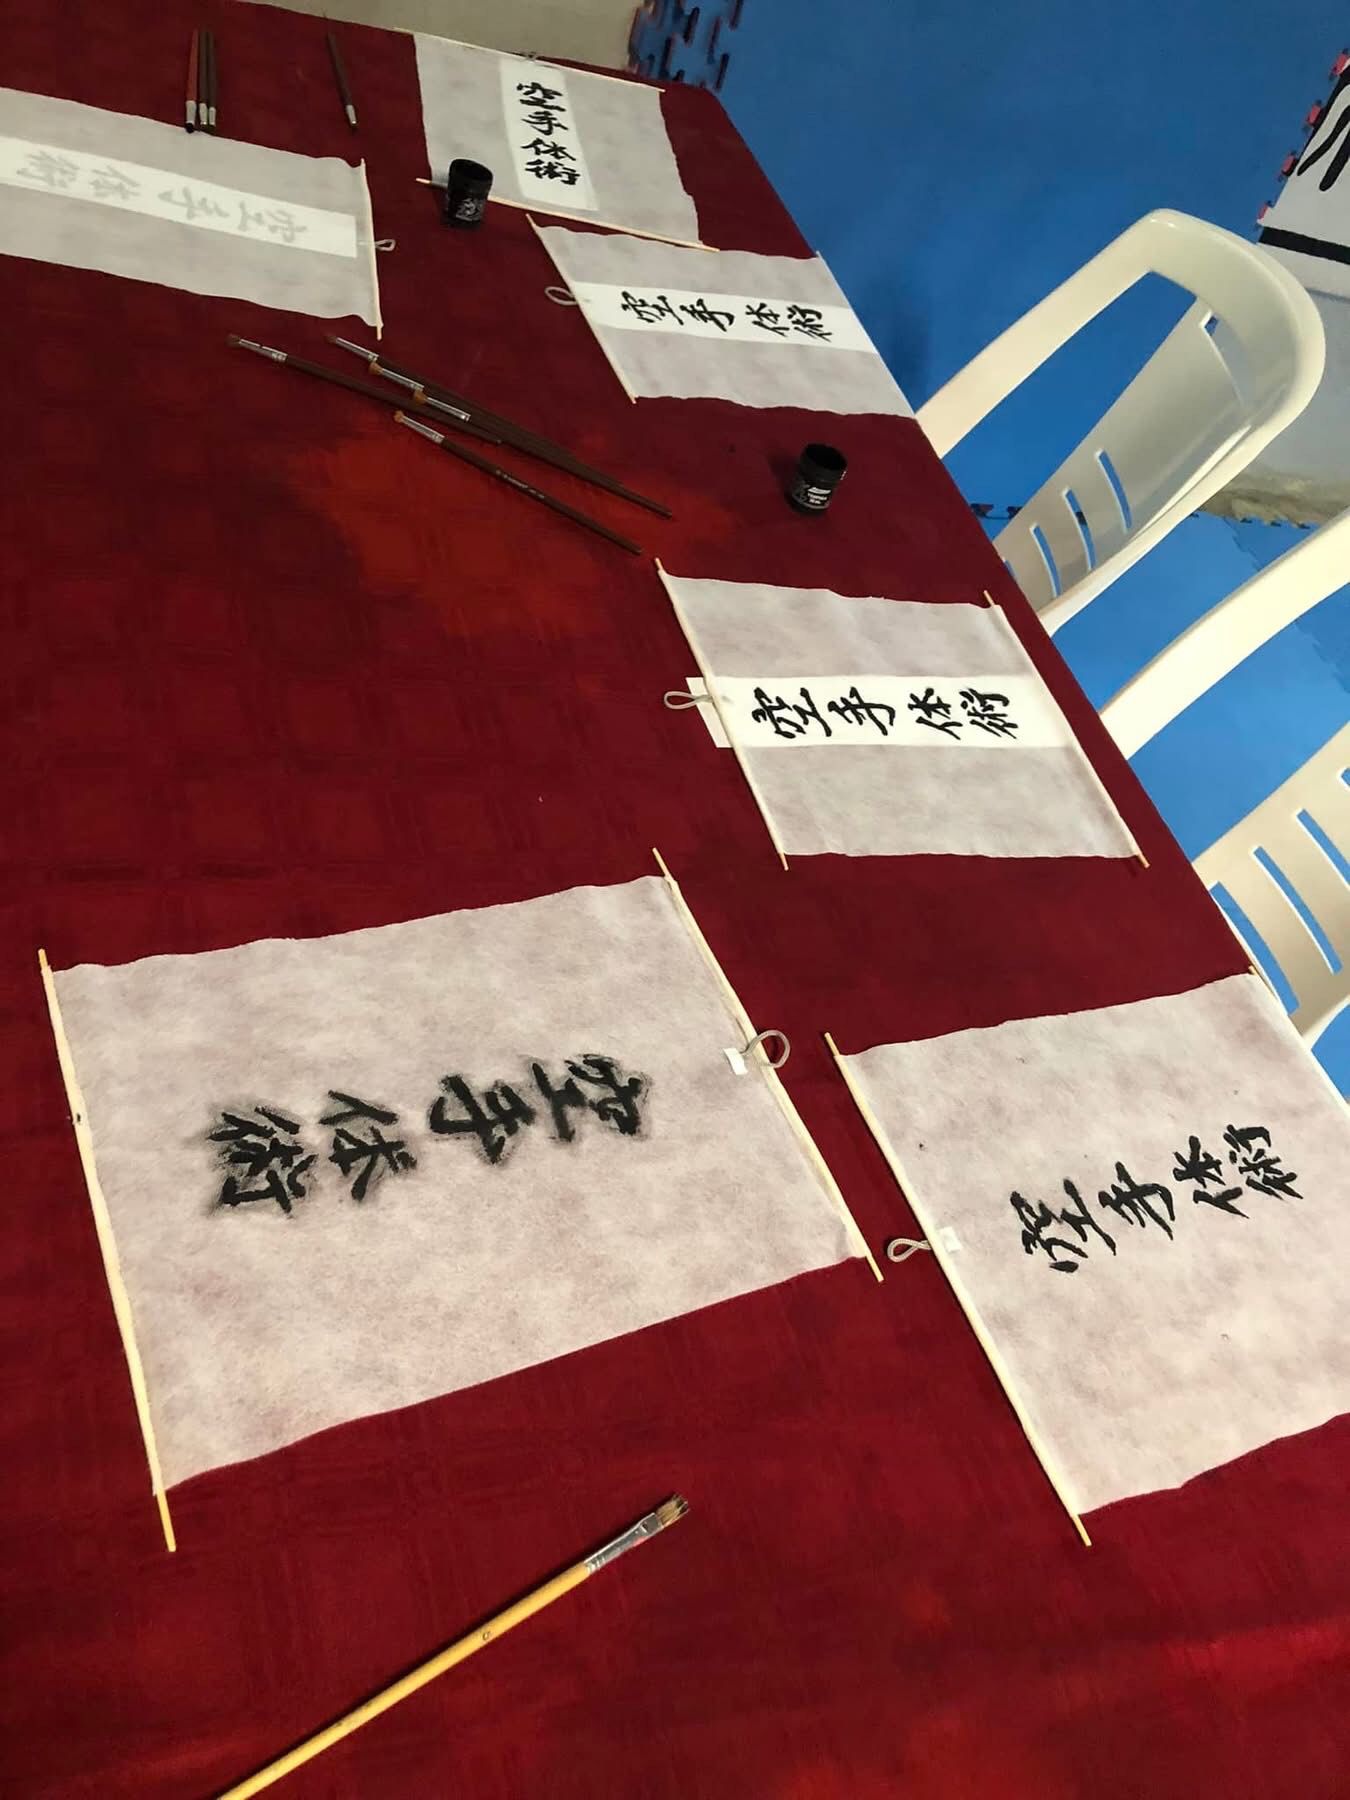 空手体術
空手体術
空手体術
空手体術
空手体術
空手体術